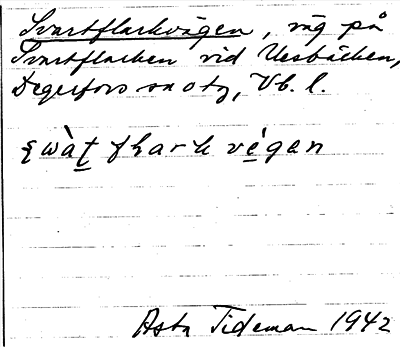 Svartflarkvägen, väg på
Svartflarken vid Uesbäcken,
Degerfors sn o tg, Vb. l.
flark vègen
Asta Tideman 1942